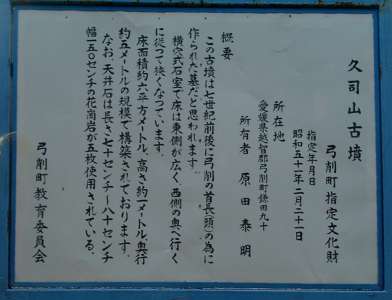 久司山古墳
弓削町指定文化財
指定年月日
昭和五十一年二月二十一日
所在地
愛媛県越智郡弓削町鎌田九十
所有者 原田泰明
概要
この古墳は七世紀前後に弓削の首長(頭)の為に
作られた墓だと思われます。
横穴式石室で床は東側が広く西側の奥へ行く
に従って狭くなっています。
床面積約六平方メートル、高さ約一メートル奥行
約五メートルの規模で構築されております。
なお、天井石は長さ七十センチ〜八十センチ
幅一五〇センチの花崗岩が五枚使用されている。
弓削町教育委員会